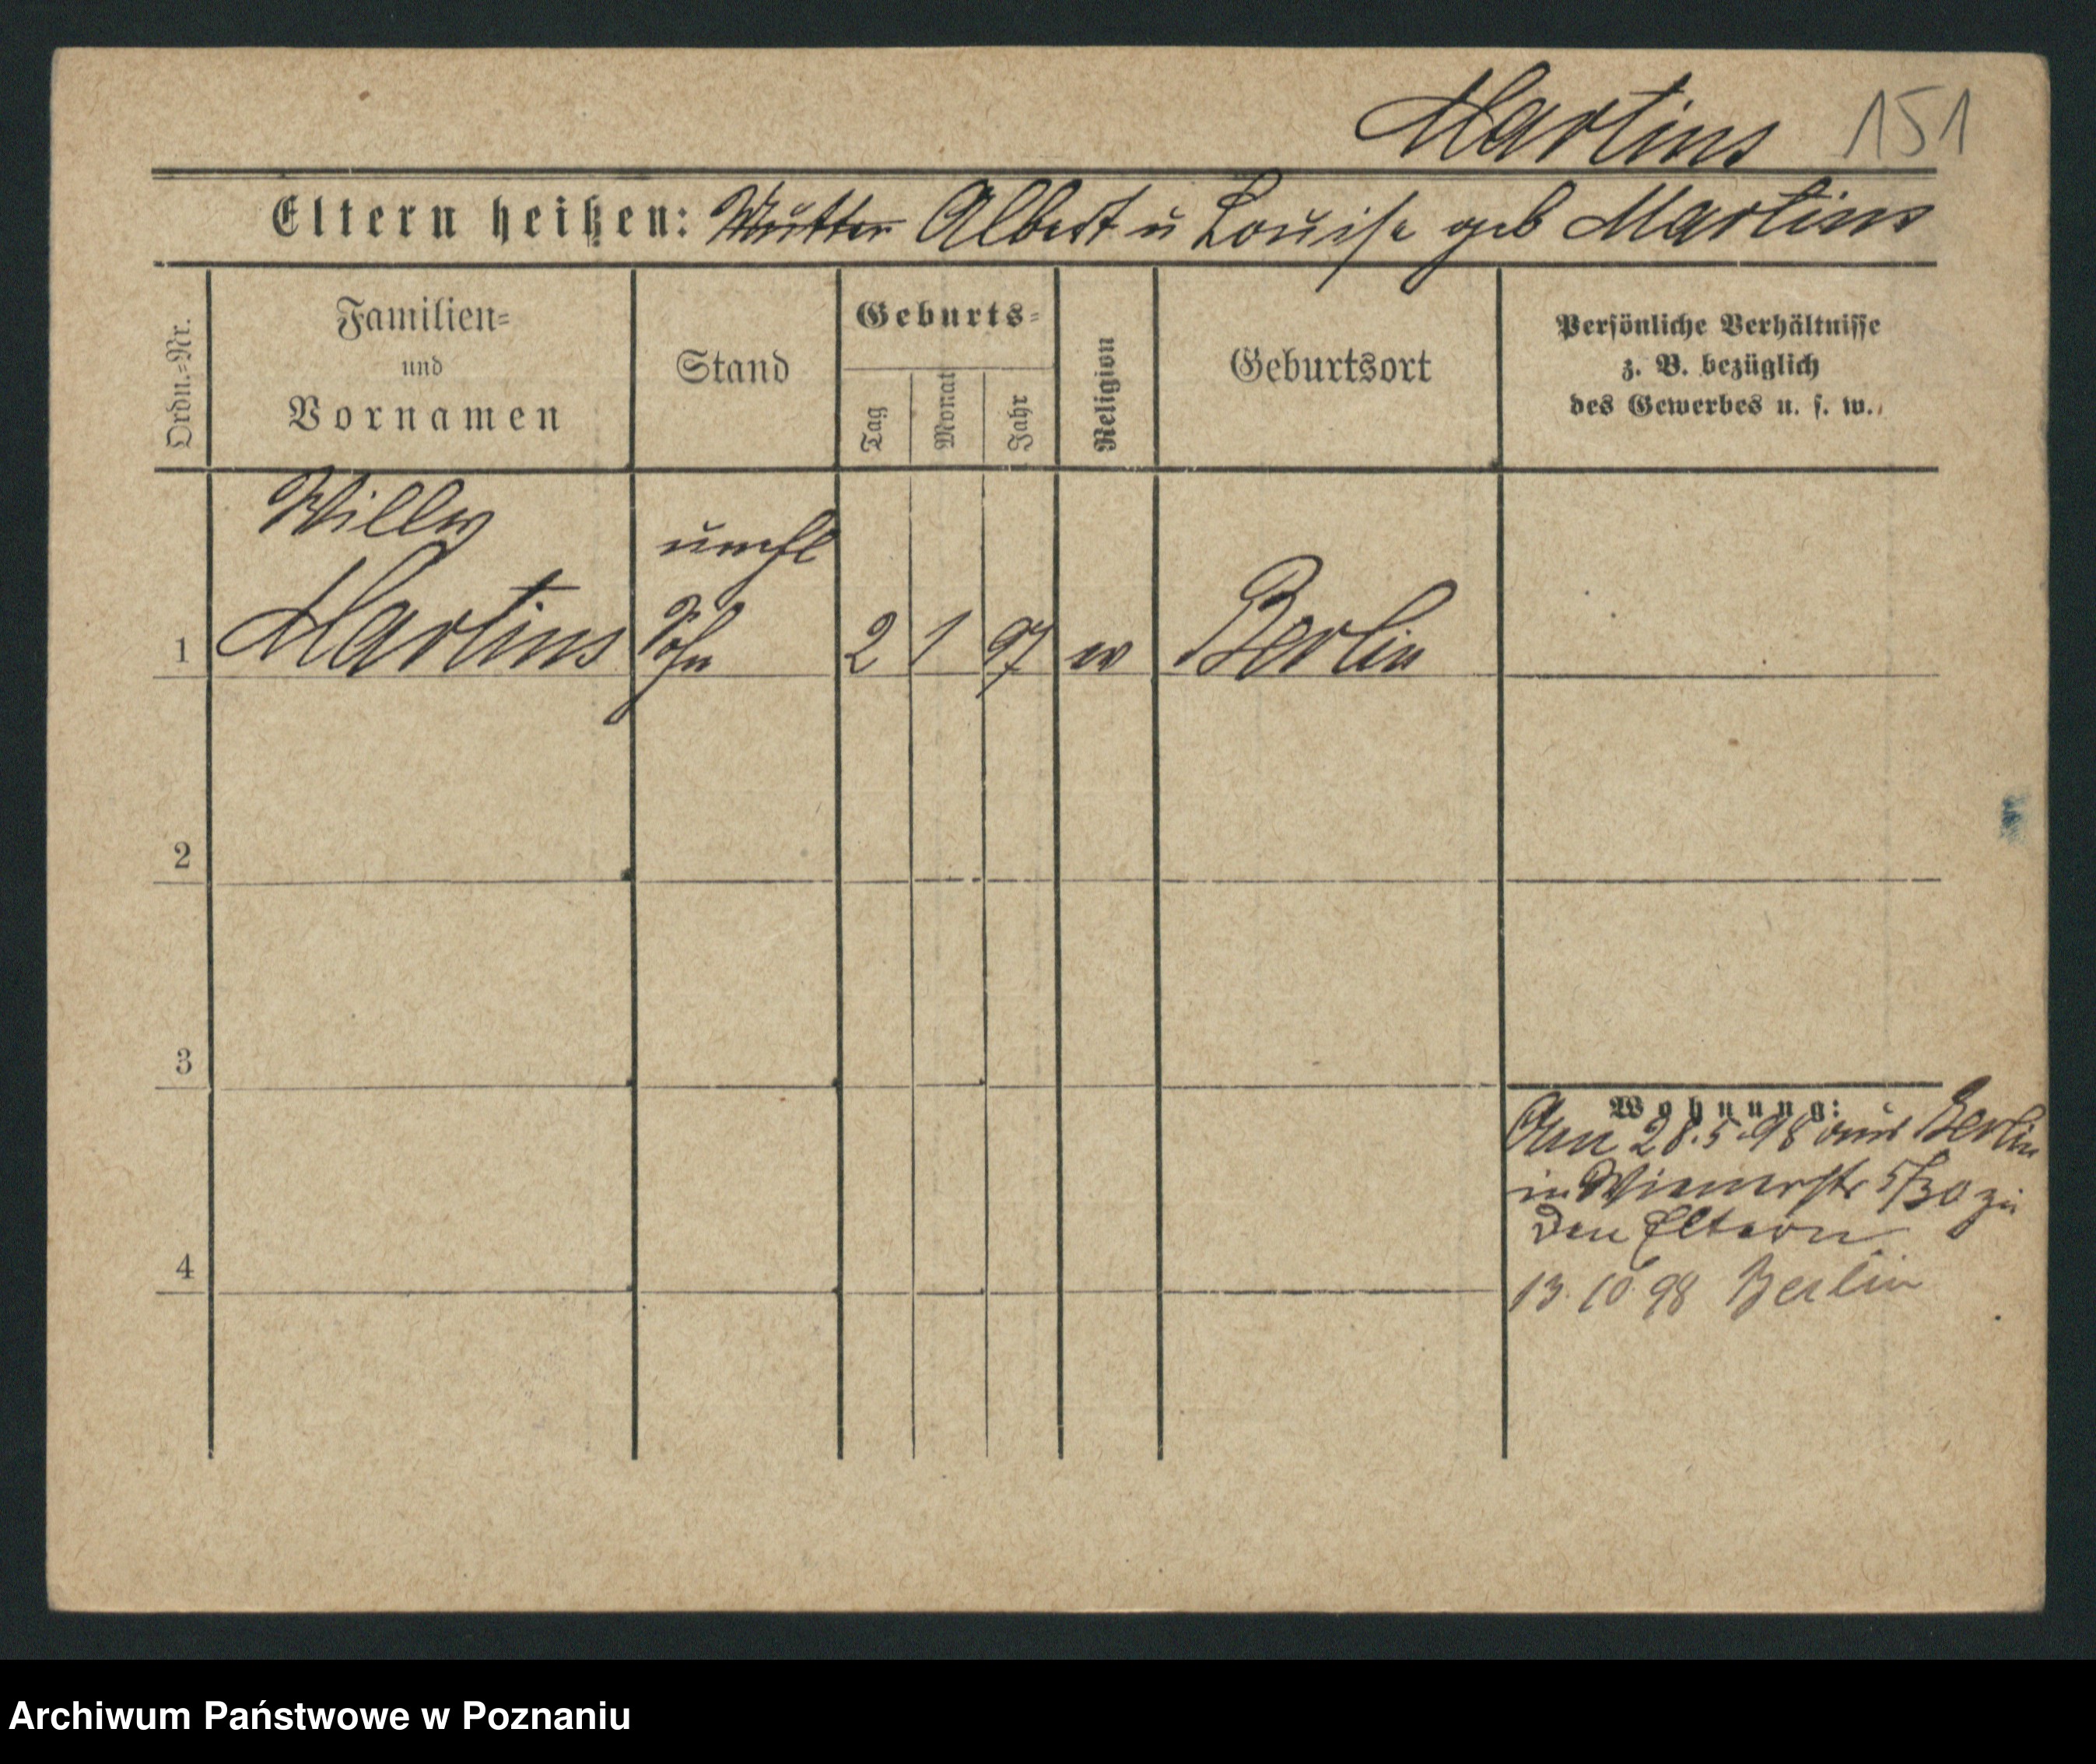 Martins 151
Eltern heißen: Mutter Albert u Louise geb Martins
Ordn.=Nr.
Familien=
und
Vornamen
Stand
Geburts=
Tag
Monat
Jahr
Religion
Geburtsort
Persönliche Verhältnisse
z. B. bezüglich
des Gewerbes u. s. w.
Willy
unehl
1 Martins Sohn 2 1 97 ev Berlin
2
3
Wohnung:
28.5.98 aus Berlin
in Wienerstr 5/30 zu
den Eltern
4
13.10 98 Berlin
Archiwum Państwowe w Poznaniu